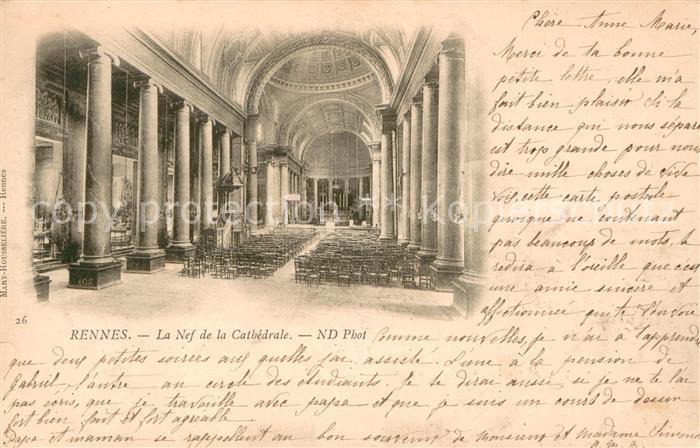 Chère Anne Marie,
Merci de ta bonne
petite lettre, elle m'a
fait bien plaisir. Si la
distance qui nous sépare
est trop grande pour nous
dire mille choses de vive
voix, cette carte postale
quoique ne contenant
pas beaucoup de mots, te
redira à l'oreille que c'est
une amie sincère et
affectionnée qui te l'envoie
MARY-ROUSSELIÈRE. — Rennes
copyright
26
RENNES. — La Nef de la Cathédrale. — ND Phot
Comme nouvelles, je n'ai à t'apprendre
que deux petites soirées auxquelles j'ai assisté. L'une à la pension de
Gabriel, l'autre au cercle des étudiants. Je te dirai aussi, si je ne te l'ai
pas écris, que je travaille avec papa et que je suis un cours de dessin
fort bien fait et fort agréable.
Papa et maman se rappellent au bon souvenir de monsieur et madame